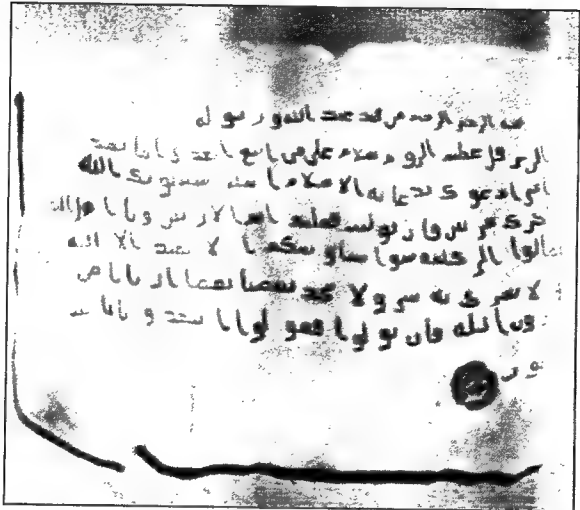 الرحمن الرحيم من محمد عبد الله ورسوله
هرقل عظيم الروم سلام على من اتبع الهدى أما بعد
ادعوك بدعاية الاسلام اسلم تسلم يؤتك الله
اجرك مرتين فان توليت فعليك اثم ويا اهل
تعالوا الى كلمة سوا بيننا وبينكم الا نعبد الا الله
ولا نشرك به ولا يتخذ بعضنا بعضا اربابا من
دون الله فان تولوا فقولوا اشهدوا بانا مسـ
لمون